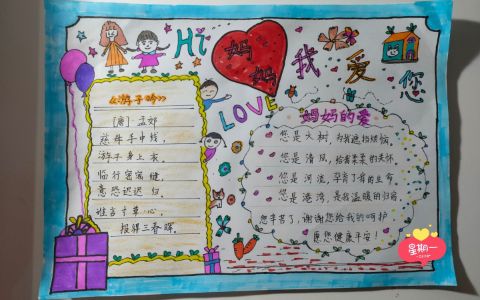 Hi
妈妈
我爱您
LOVE
《游子吟》
[唐] 孟郊
慈母手中线，
游子身上衣，
临行密密缝，
意恐迟迟归，
谁言寸草心，
报得三春晖。
妈妈的爱
您是大树，为我遮挡烦恼，
您是清风，
您是河流，孕育了我的生命，
您是港湾，是我温暖的归宿，
您辛苦了，谢谢您给我的呵护
愿您健康平安！
星期一